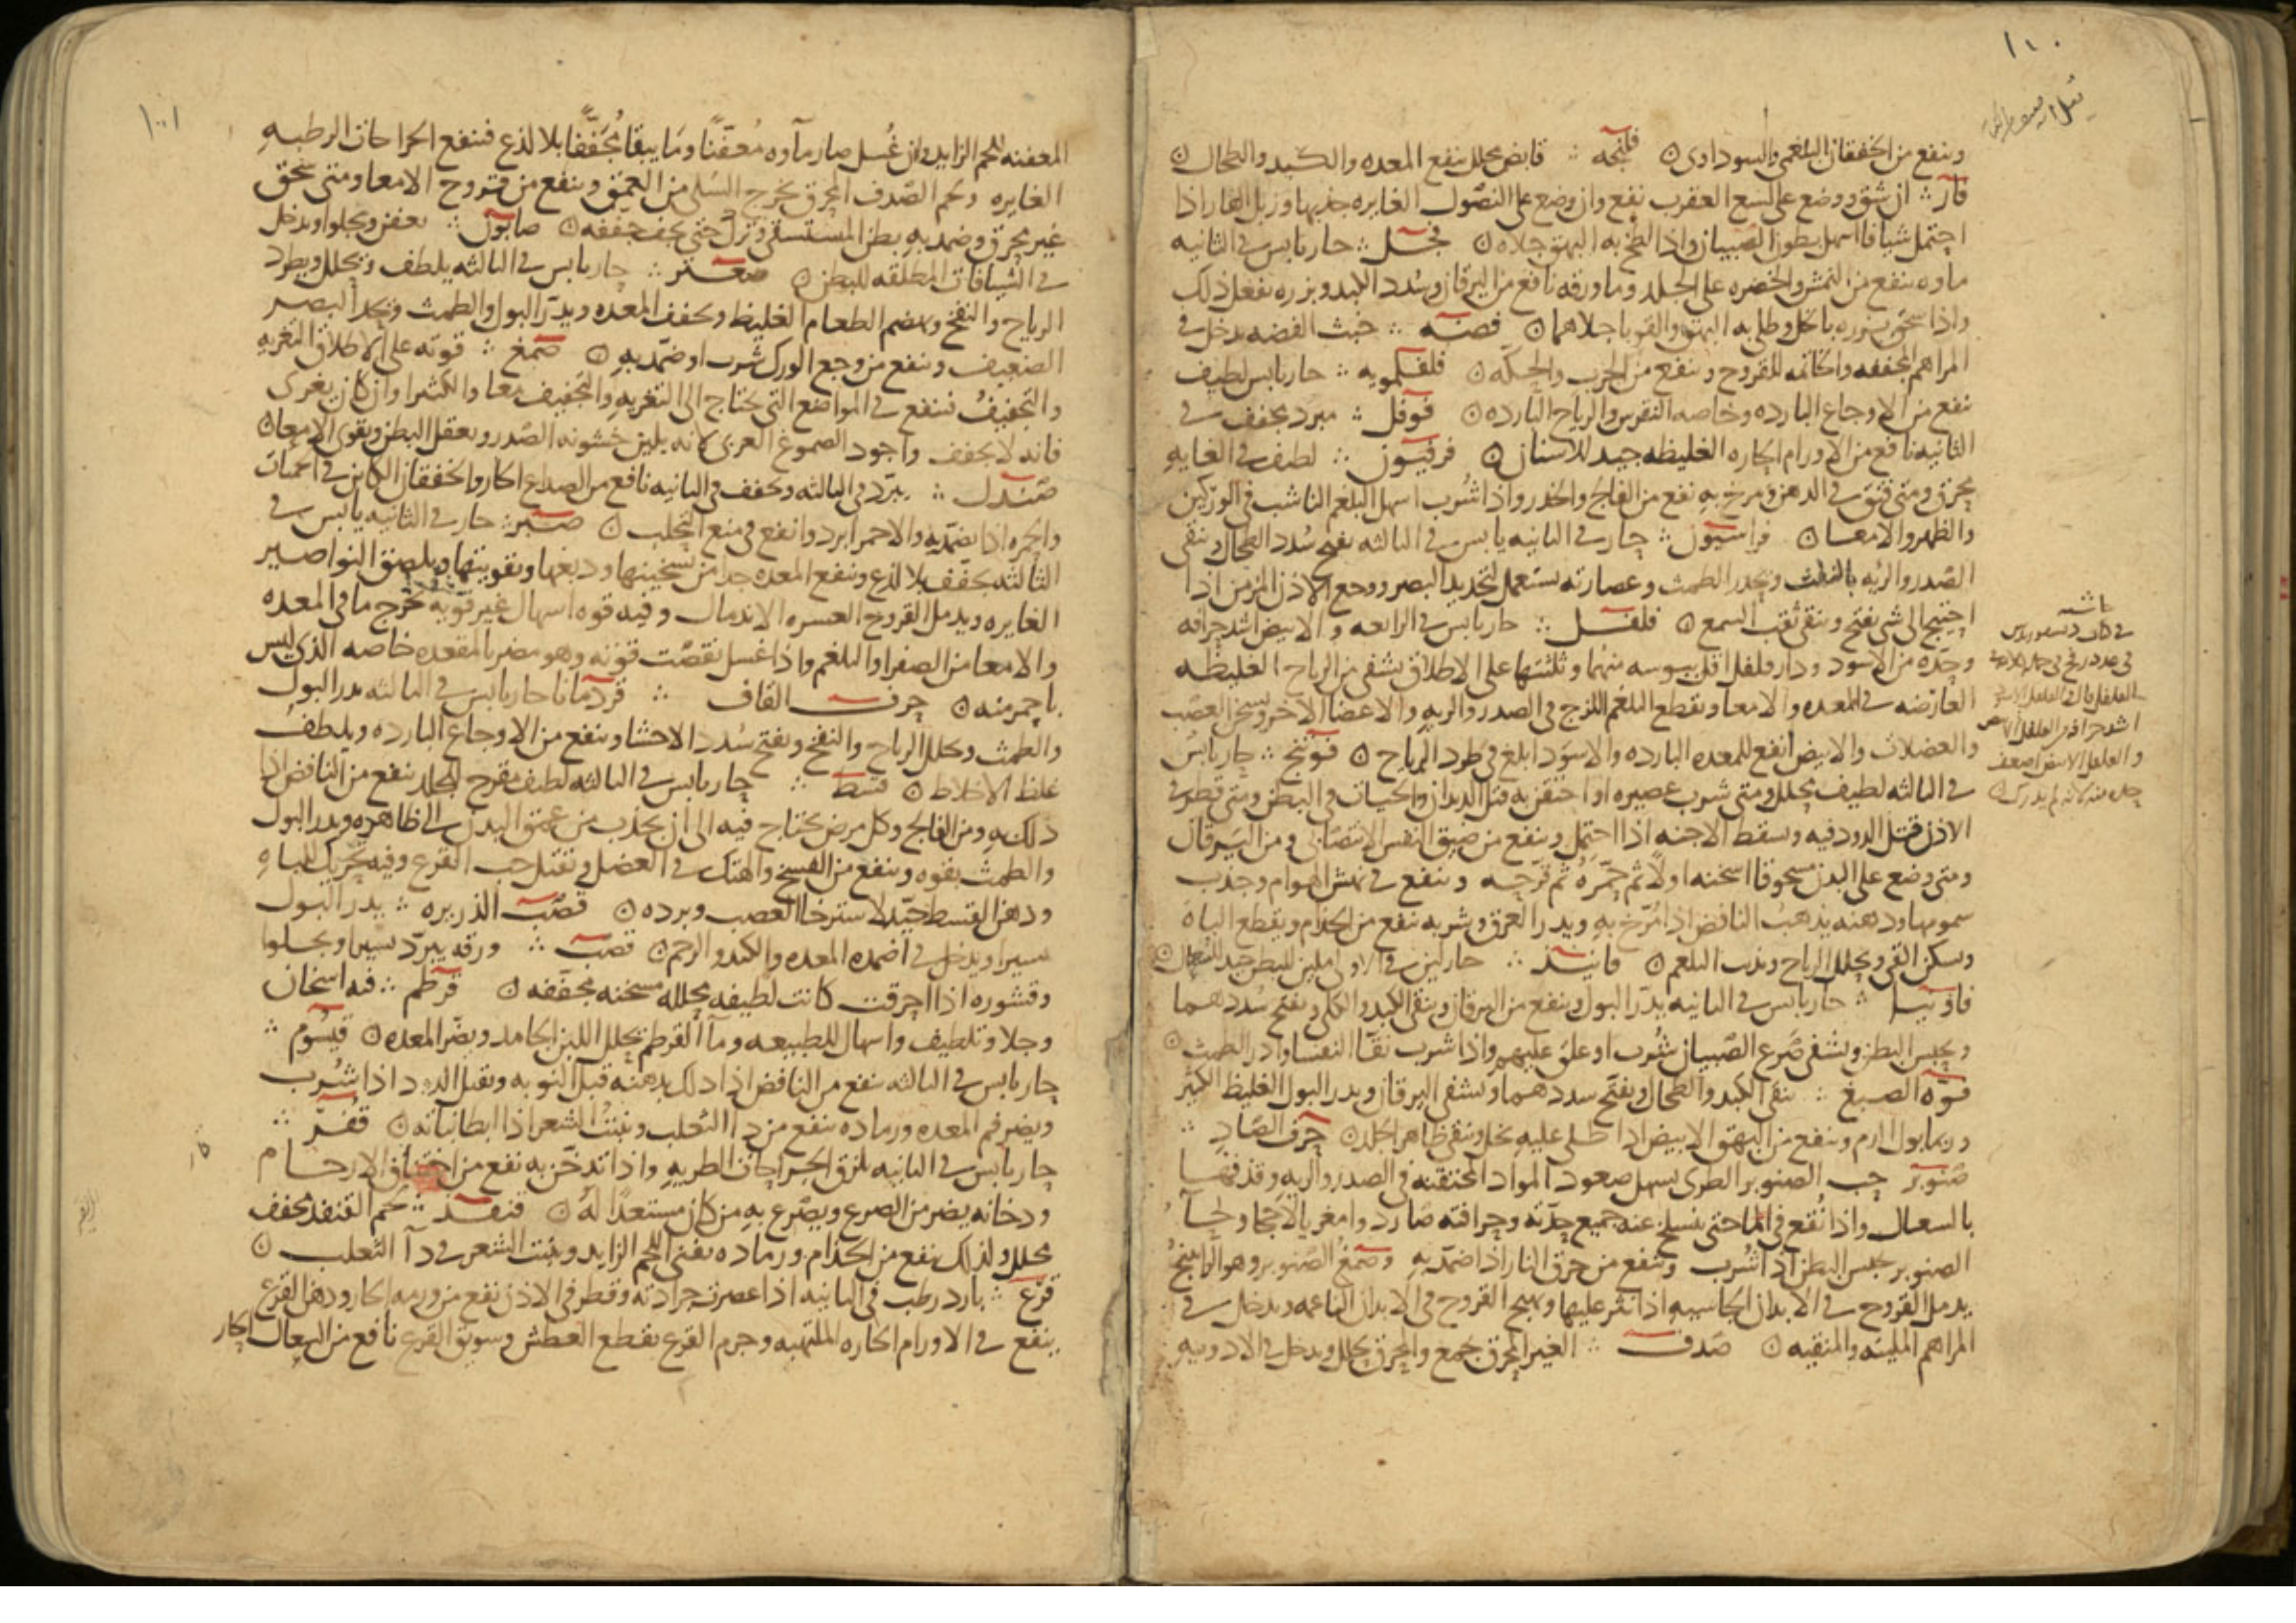 ١١٠
وينفع من الخفقان البلغمي والسوداوي ۞ فلنجه ∴ قابض محلل ينفع المعده والكبد والطحال ۞
فار ∴ ان شق ووضع على لسع العقرب نفع وان وضع على النصول الغايره جذبها وزبل الفار اذا
احتمل شيافا اسهل بطون الصبيان واذا لطخ به البهق جلاه ۞ فجل ∴ حار يابس في الثانيه
ماوه ينفع من النمش والخضره على الجلد وما ورقه نافع من اليرقان وسدد الكبد وبزره يفعل ذلك
واذا سحق بزوره بالخل وطلي به البهق والقوبا جلاهما ۞ فضه ∴ خبث الفضه يدخل في
المراهم المجففه والخاتمه للقروح وينفع من الجرب والحكه ۞ ∴ حار يابس لطيف
نفع من الاوجاع البارده وخاصه النقرس والرياح البارده ۞ فوفل ∴ مبرد مجفف في
الثانيه نافع من الاورام الحاره الغليظه جيد للاسنان ۞ فرفيون ∴ لطيف في الغايه
محرق ومتى فتق في الدهن ومرخ به نفع من الفالج والخدر واذا شرب اسهل البلغم الناشب في الوركين
والظهر والامعا ۞ فراسيون ∴ حار في الثانيه يابس في الثالثه يفتح سدد الطحال وينقي
الصدر والريه بالنفث ويحدر الطمث وعصارته تستعمل لتحديد البصر ووجع الاذن المزمن اذا
احتيج الى شي يفتح وينقي ثقب السمع ۞ فلفل ∴ حار يابس في الرابعه والابيض اشد حرافه
وحده من الاسود ودار فلفل اقل يبوسه منهما وثلثتها على الاطلاق تشفي من الرياح الغليظه
العارضه في المعده والامعا وتقطع البلغم اللزج في الصدر والريه والاعضا الاخر وتسخن العصب
والعضلات والابيض انفع للمعده البارده والاسود ابلغ في طرد الرياح ۞ فوتنج ∴ حار يابس
في الثالثه لطيف محلل ومتى شرب عصيره او احتقن به قتل الديدان والحيات في البطن ومتى قطر في
الاذن قتل الدود فيه ويسقط الاجنه اذا احتمل وينفع من ضيق النفس الانتصابي ومن اليرقان
ومتى وضع على البدن مسحوقا اسخنه اولا ثم حمره ثم قرحه وينفع في نهش الهوام وجذب
سمومها ودهنه يذهب النافض اذا مرخ به ويدر العرق وشربه ينفع من الجذام ويقطع الباه
ويسكن القي ويحلل الرياح ويذيب البلغم ۞ فانيذ ∴ حار لين في الاولى ملين للبطن جيد للسعال ۞
فاونيا ∴ حار يابس في الثانيه يدر البول وينفع من اليرقان وينقي الكبد والكلى ويفتح سددهما
ويحبس البطن ويشفي صرع الصبيان شرب او علق عليهم واذا شرب نقا النفسا وادر الطمث ۞
فوه الصبغ ∴ ينقي الكبد والطحال ويفتح سددهما ويشفي اليرقان ويدر البول الغليظ الكثير
وربما بول الدم وينفع من البهق الابيض اذا طلي عليه بخل وينقي ظاهر الجلد ۞ حرف الصاد ∴
صنوبر حب الصنوبر الطري يسهل صعود المواد المختنقه في الصدر والريه وقذفها
بالسعال واذا نقع في الماحتى ينسلخ عنه جميع حدته وحرافته صارد وامغر بالاحجا ولحا
الصنوبر يحبس البطن اذا شرب وينفع من حرق النار اذا ضمد به وصمغ الصنوبر وهو الراتينج
يدمل القروح في الابدان الجاسيه اذا نثر عليها ويهيج القروح في الابدان الناعمه ويدخل في
المراهم الملينه والمنقيه ۞ صدف ∴ الغير المحرق يجمع والمحرق يحلل ويدخل في الادويه
حاشيه
١٠١
المعفنه للحم الزايد فان غسل صار ماوه معفنا وما يبقا مجففا بلا لذع فينفع الجراحات الرطبه
الغايره ولحم الصدف المحرق يخرج السلى من العمق وينفع من قروح الامعا ومتى سحق
غير محرق وضمد به بطن المستسقي وترك حتى يجف جففه ۞ صابون ∴ يعفن ويجلو او يدخل
في الشيافات المطلقه للبطن ۞ صعتر ∴ حار يابس في الثالثه يلطف ويحلل ويطرد
الرياح والنفخ ويهضم الطعام الغليظ ويجفف المعده ويدر البول والطمث ويحد البصر
الضعيف وينفع من وجع الورك شرب او ضمد به ۞ صمغ ∴ قوته على الاطلاق التغريه
والتجفيف فينفع في المواضع التي تحتاج الى التغريه والتجفيف معا والكثيرا وان كان يغري
فانه لا يجفف واجود الصموغ العربي لانه يلين خشونه الصدر ويعقل البطن ويقوي الامعا ۞
صندل ∴ يبرد في الثالثه ويجفف في الثانيه نافع من الصداع الحار والخفقان الكاين في الحميات
والحمره اذا يضمد به والاحمر ابرد وانفع في منع التحلب ۞ صبر ∴ حار في الثانيه يابس في
الثالثه يجفف بلا لذع وينفع المعده جدا من تسخينها ودبغها وتقويتها ويلصق النواصير
الغايره ويدمل القروح العسره الاندمال وفيه قوه اسهال غير قويه تخرج ما في المعده
والامعا من الصفرا والبلغم واذا غسل نقصت قوته وهو مضر بالمقعده خاصه الذي ليس
باحمر منه ۞ حرف القاف ∴ قردمانا حار يابس في الثالثه يدر البول
والطمث ويحلل الرياح والنفخ ويفتح سدد الاحشا وينفع من الاوجاع البارده ويلطف
غلظ الاخلاط ۞ قسط ∴ حار يابس في الثالثه لطيف مقرح للجلد ينفع من النافض اذا
دلك به ومن الفالج وكل مرض يحتاج فيه الى ان يجذب من عمق البدن الى ظاهره ويدر البول
والطمث بقوه وينفع من الفسخ والهتك في العضل ويقتل حب القرع وفيه تحريك للباه
ودهن القسط جيد لاسترخا العصب وبرده ۞ قصب الذريره ∴ يدر البول
يسيرا ويدخل في اضمده المعده والكبد والرحم ۞ قصب ∴ ورقه يبرد يسيرا ويجلوا
وقشوره اذا احرقت كانت لطيفه محلله مسخنه مجففه ۞ قرطم ∴ فيه اسخان
وجلا وتلطيف واسهال للطبيعه وماء القرطم يحلل اللبن الجامد ويضر المعده ۞ قيسوم ∴
حار يابس في الثالثه ينفع من النافض اذا دلك بدهنه قبل النوبه ويقتل الدود اذا شرب
ويضر فم المعده ورماده ينفع من داالثعلب وينبت الشعر اذا ابطا نباته ۞ قفر ∴
حار يابس في الثانيه يلزق الجراحات الطريه واذا تدخن به نفع من اختناق الارحام
ودخانه يضر من الصرع ويصرع به من كان مستعدا له ۞ قنفذ ∴ لحم القنفذ يجفف
يحلل ولذلك ينفع من الجذام ورماده يفني اللحم الزايد وينبت الشعر في داء الثعلب ۞
قرع ∴ بارد رطب في الثانيه اذا عصرت جرادته وقطر في الاذن نفع من ورمه الحار ودهن القرع
ينفع في الاورام الحاره الملتهبه وجرم القرع يقطع العطش وسويق القرع نافع من السعال الحار